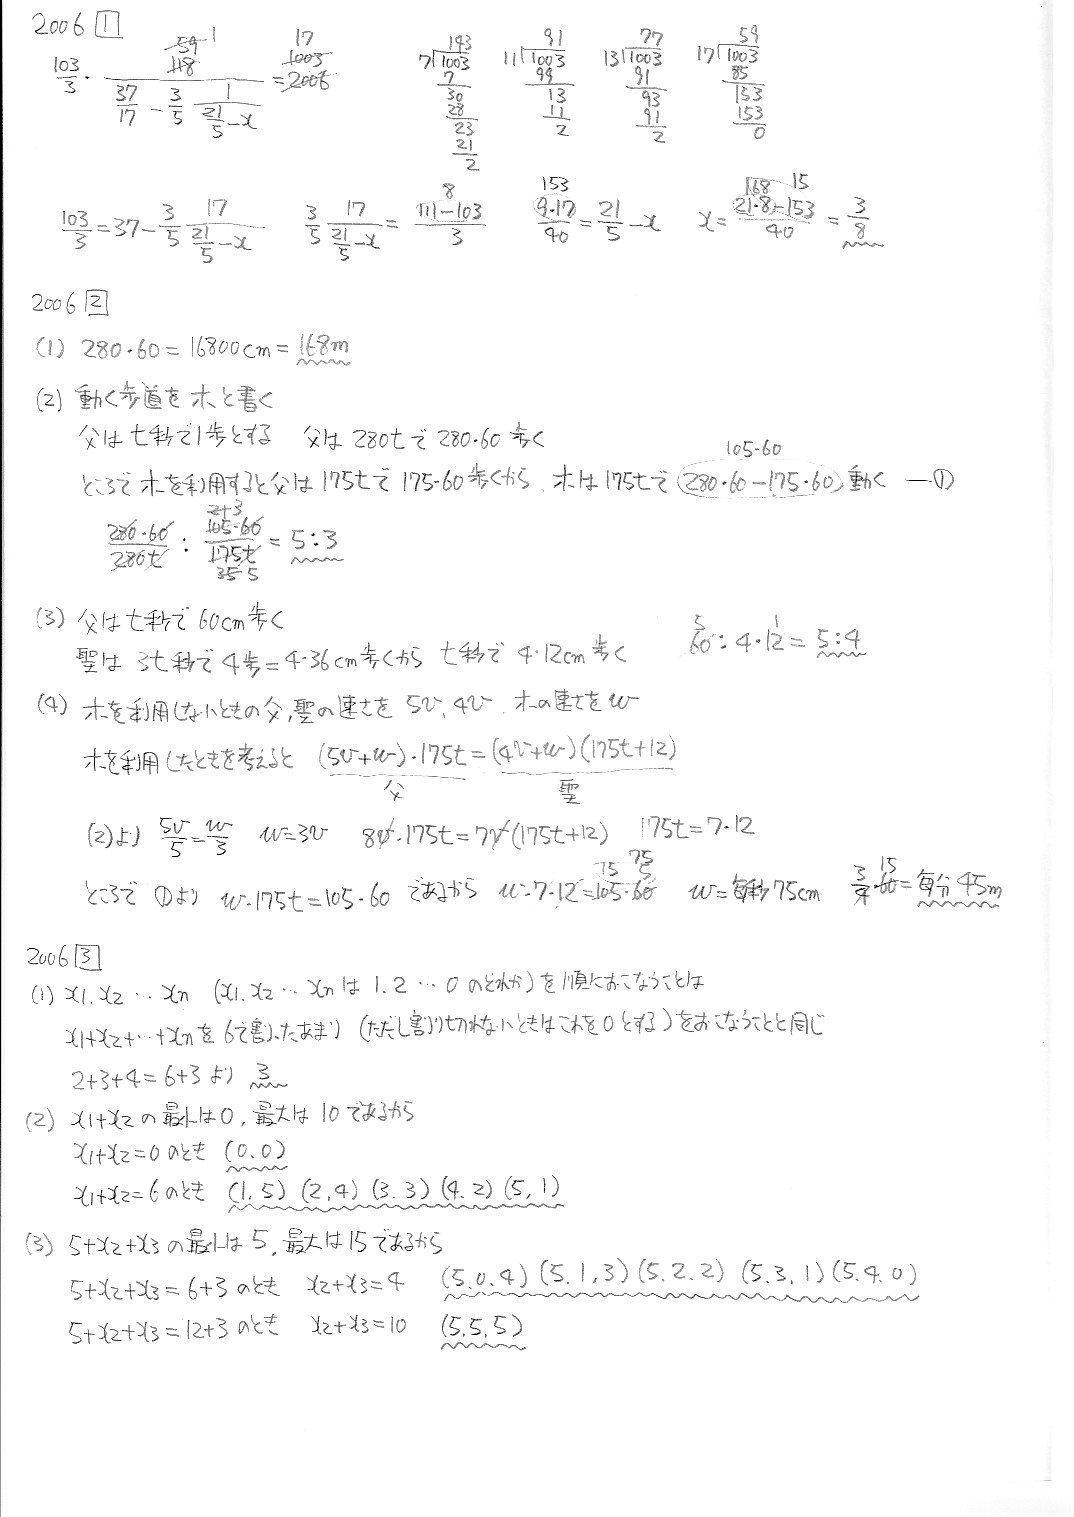 2006 [1]
103/3 · (59 1 / 118) / (37/17 − 3/5 · 1/(21/5 − x)) = 17 1003 2006
143 7)1003 7 30 28 23 21 2
91 11)1003 99 13 11 2
77 13)1003 91 93 91 2
59 17)1003 85 153 153 0
103/3 = 37 − 3/5 · 17/(21/5 − x)  3/5 · 17/(21/5 − x) = 8 (111−103)/3  153 9·17/40 = 21/5 − x  x = 168 15 (21·8−153)/40 = 3/8
2006 [2]
(1) 280·60 = 16800cm = 168m
(2) 動く歩道を ホと書く
父は t秒で1歩とする 父は 280tで 280·60 歩く
105·60
ところで ホを利用すると父は 175tで 175·60 歩くから、ホは175tで (280·60−175·60) 動く —①
280·60/280t : 105·60/175t = 5:3
21 3
35 5
(3) 父は t秒で 60cm歩く
聖は 3t秒で 4歩=4·36cm歩くから t秒で 4·12cm 歩く  5 60 : 4·12 1 = 5:4
(4) ホを利用しないときの父,聖の速さを 5v, 4v、ホの速さをw
ホを利用したときを考えると (5v+w)·175t = (4v+w)(175t+12)
父 聖
(2)より 5v/5 = w/3  w=3v  8v·175t=7v(175t+12)  175t=7·12
ところで ①より w·175t=105·60 であるから w·7·12=105·60 15 75 5  w=毎秒75cm  3/4·60 15=毎分45m
2006 [3]
(1) x1. x2 ‥ xn (x1. x2 ‥ xn は 1. 2 ‥ 0 のどれか) を順におこなうことは
x1+x2+‥+xn を 6で割ったあまり (ただし割り切れないときはこれを0とする) をおこなうことと同じ
2+3+4=6+3より 3
(2) x1+x2 の最小は0, 最大は 10であるから
x1+x2=0 のとき (0.0)
x1+x2=6のとき (1,5) (2,4) (3.3) (4.2) (5,1)
(3) 5+x2+x3 の最小は 5, 最大は15であるから
5+x2+x3=6+3 のとき x2+x3=4 (5.0.4) (5.1,3) (5.2.2) (5.3,1) (5.4.0)
5+x2+x3=12+3 のとき x2+x3=10 (5.5,5)